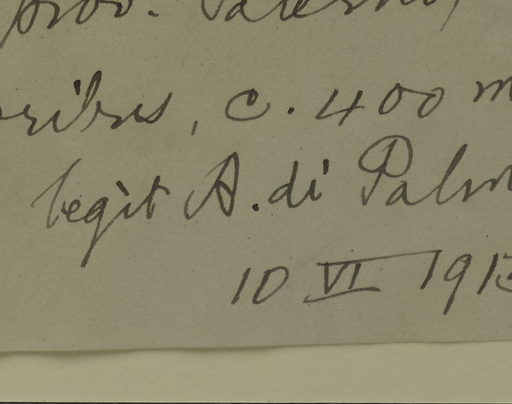 prov. Palermo,
, c. 400 m
legit A. di Palm
10 VI 1913